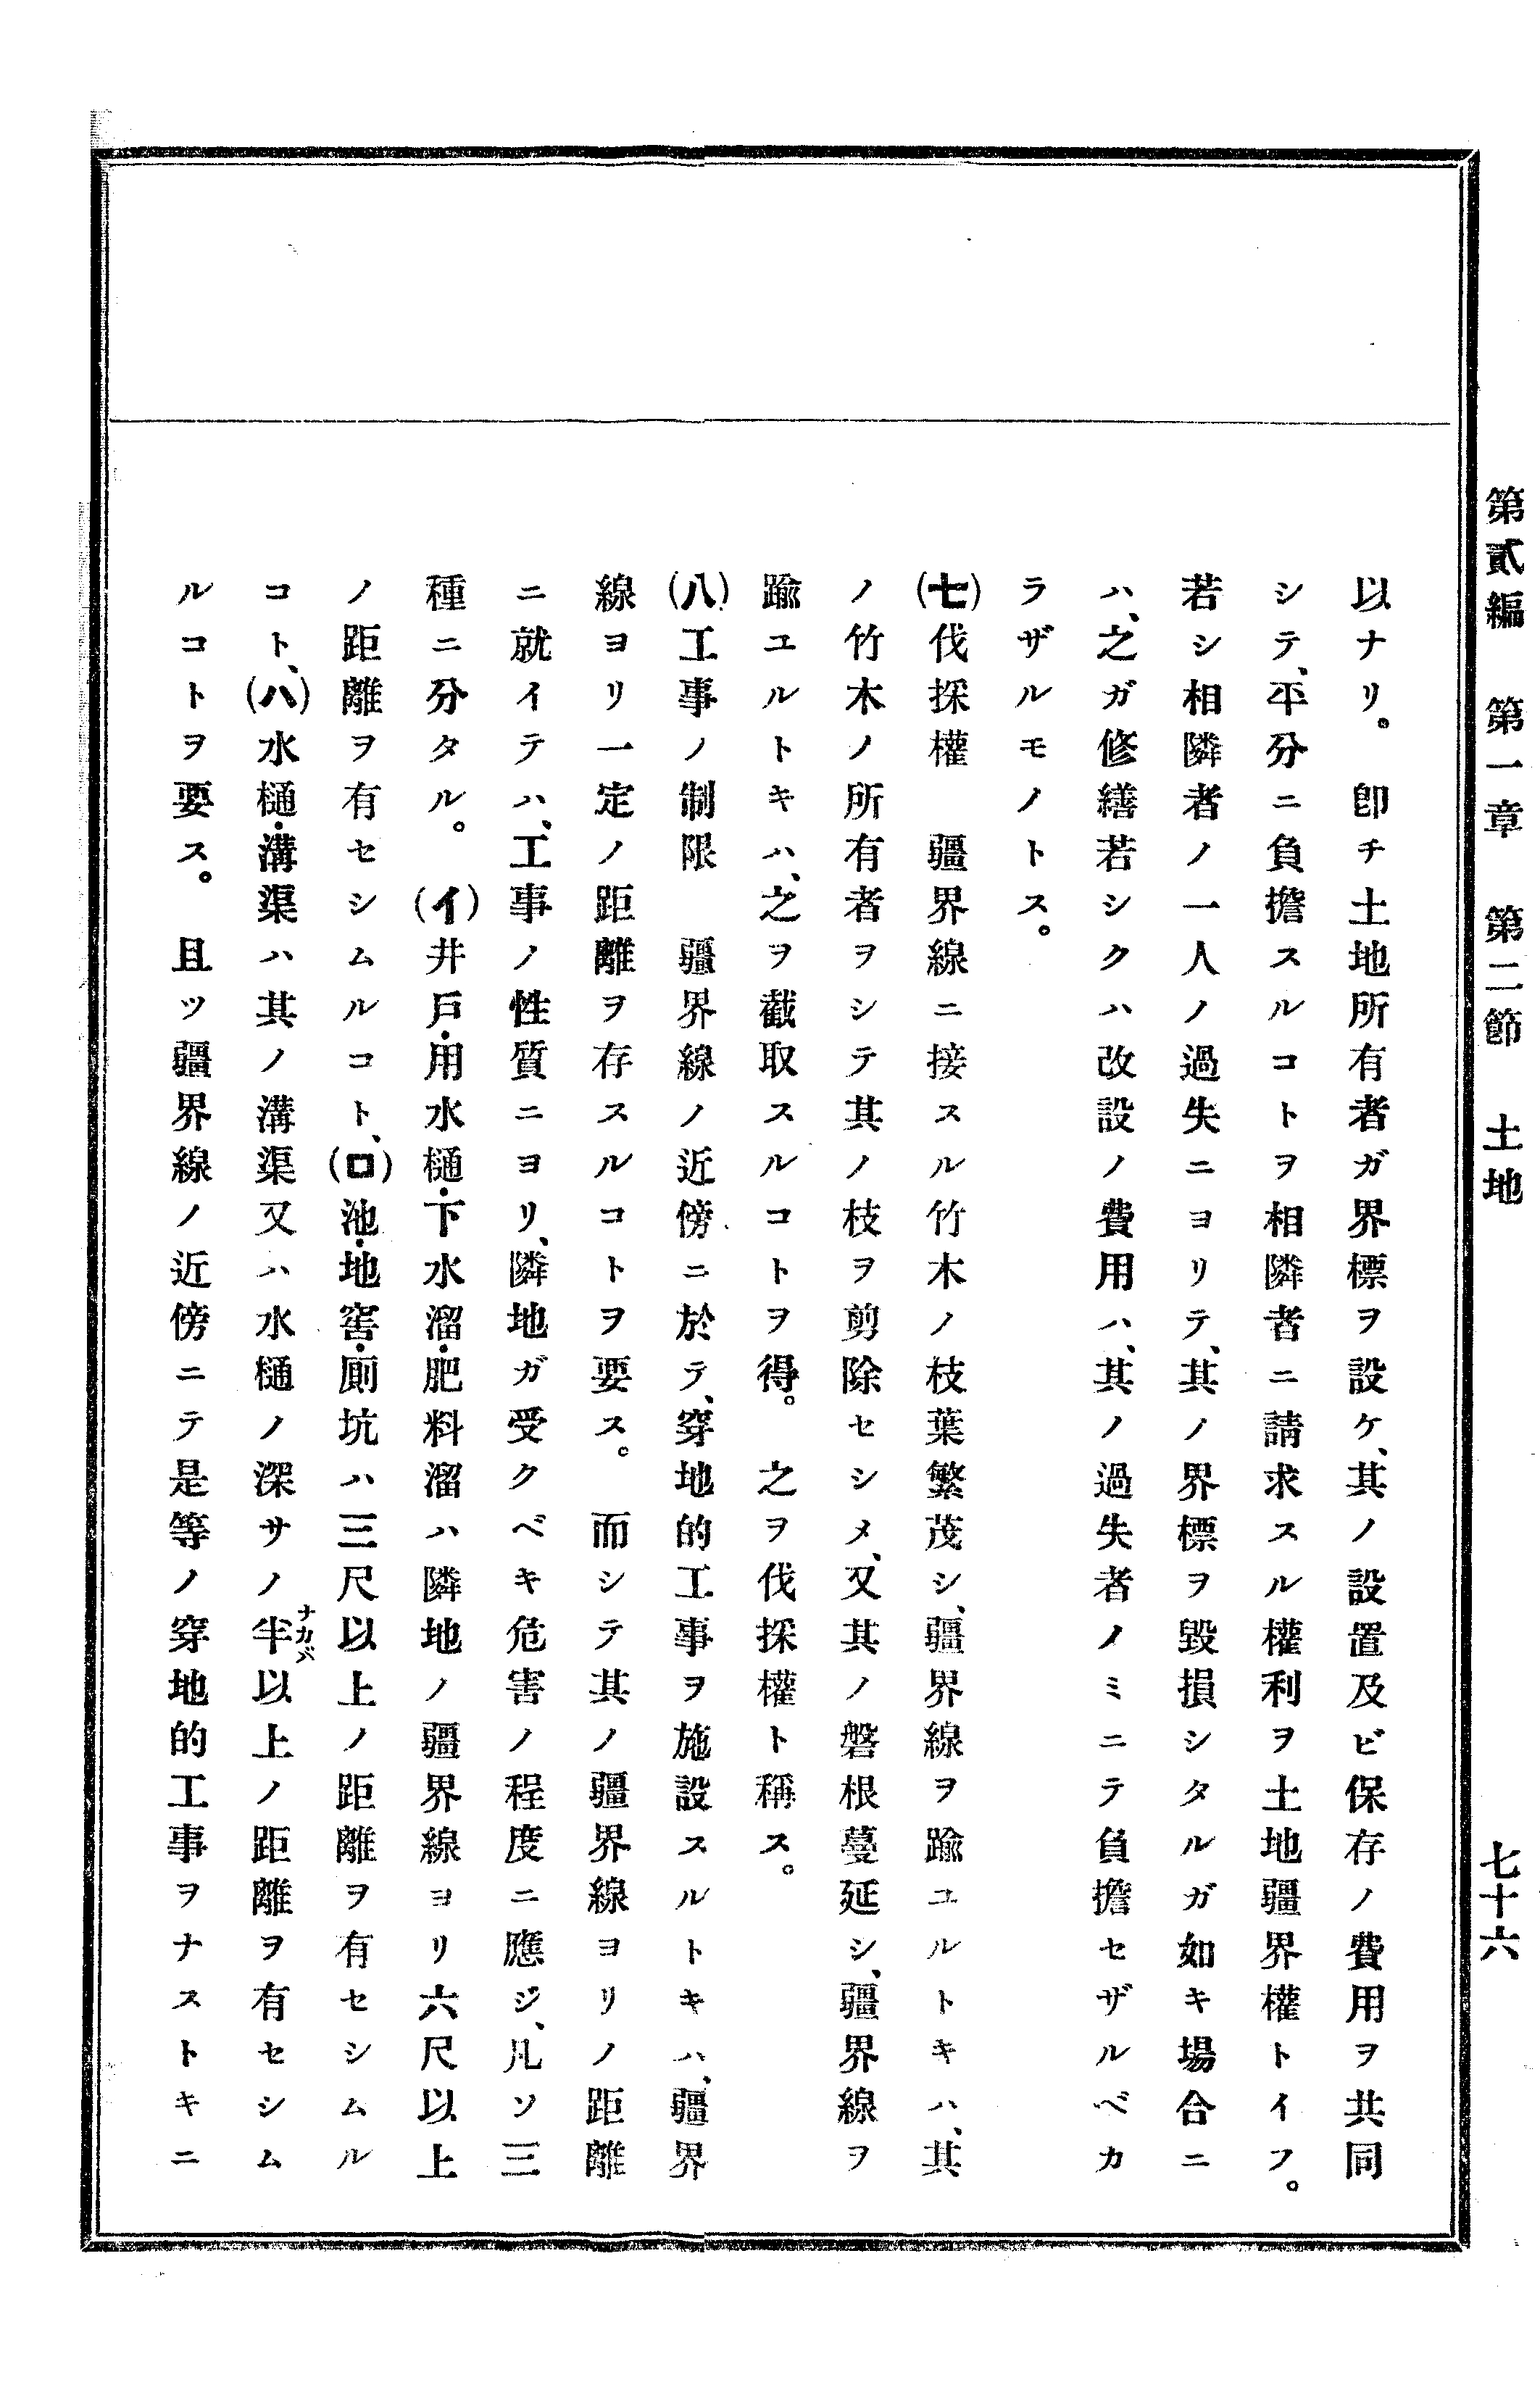 第貳編　第一章　第二節　土地　七十六
以ナリ。　卽チ土地所有者ガ界標ヲ設ケ、其ノ設置及ビ保存ノ費用ヲ共同
シテ、平分ニ負擔スルコトヲ相隣者ニ請求スル權利ヲ土地疆界權トイフ。
若シ相隣者ノ一人ノ過失ニヨリテ、其ノ界標ヲ毀損シタルガ如キ場合ニ
ハ、之ガ修繕若シクハ改設ノ費用ハ、其ノ過失者ノミニテ負擔セザルベカ
ラザルモノトス。
(七)伐採權　疆界線ニ接スル竹木ノ枝葉繁茂シ、疆界線ヲ踰ユルトキハ、其
ノ竹木ノ所有者ヲシテ其ノ枝ヲ剪除セシメ、又其ノ磐根蔓延シ、疆界線ヲ
踰ユルトキハ、之ヲ截取スルコトヲ得。　之ヲ伐採權ト稱ス。
(八)工事ノ制限　疆界線ノ近傍ニ於テ、穿地的工事ヲ施設スルトキハ、疆界
線ヨリ一定ノ距離ヲ存スルコトヲ要ス。　而シテ其ノ疆界線ヨリノ距離
ニ就イテハ、工事ノ性質ニヨリ、隣地ガ受クベキ危害ノ程度ニ應ジ、凡ソ三
種ニ分タル。　(イ)井戶・用水樋・下水溜・肥料溜ハ隣地ノ疆界線ヨリ六尺以上
ノ距離ヲ有セシムルコト、(ロ)池・地窖・厠坑ハ三尺以上ノ距離ヲ有セシムル
コト、(ハ)水樋・溝渠ハ其ノ溝渠又ハ水樋ノ深サノ半ナカバ以上ノ距離ヲ有セシム
ルコトヲ要ス。　且ツ疆界線ノ近傍ニテ是等ノ穿地的工事ヲナストキニ